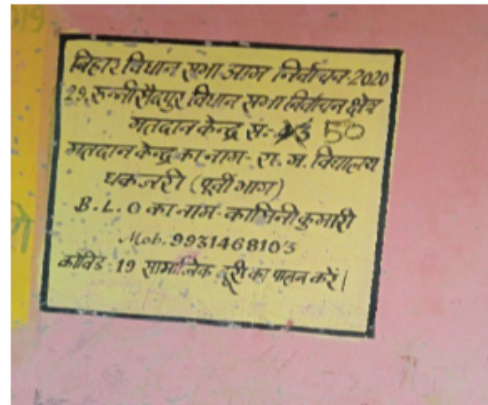 बिहार विधान सभा आम निर्वाचन-2020
29, रून्नीसैदपुर विधान सभा निर्वाचन क्षेत्र
मतदान केन्द्र सं- 50
मतदान केन्द्र का नाम- रा. म. विद्यालय
धकजरी (पूर्वी भाग)
B.L.O का नाम- कामिनी कुमारी
Mob. 9931468103
कोविड-19 सामाजिक दूरी का पालन करें|